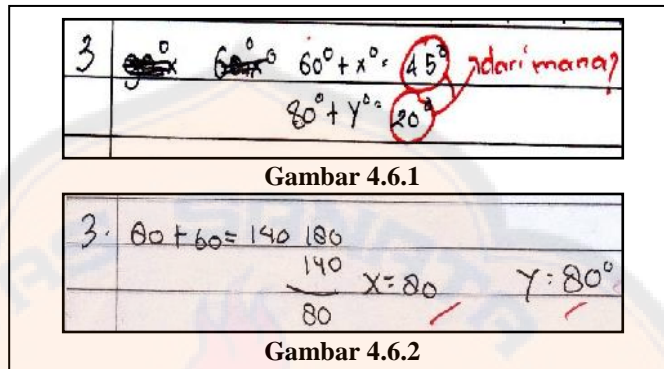 3 60° + x° = 45° dari mana?
80° + y° = 20°
Gambar 4.6.1
3. 80 + 60 = 140 180
140
80 x = 80 y = 80°
Gambar 4.6.2